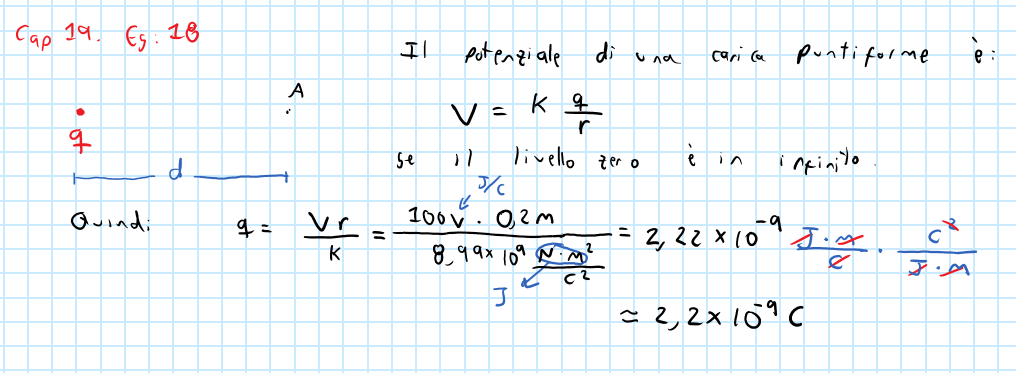 Cap 19. Es. 18
Il potenziale di una carica puntiforme è:
A
q
V = K q/r
se il livello zero è in infinito.
d
J/C
Quindi q = Vr/K = 100V · 0,2m / 8,99×10⁹ N·m²/C² = 2,22×10⁻⁹ J·m/C · C²/J·m
J
≃ 2,2×10⁻⁹ C